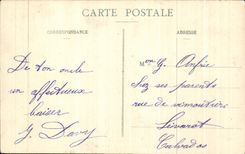 CARTE POSTALE
CORRESPONDANCE
ADRESSE
De ton oncle
un affectueux
baiser
J. Davy
Mon G.
Chez ses parents
rue de
Livarot
Calvados